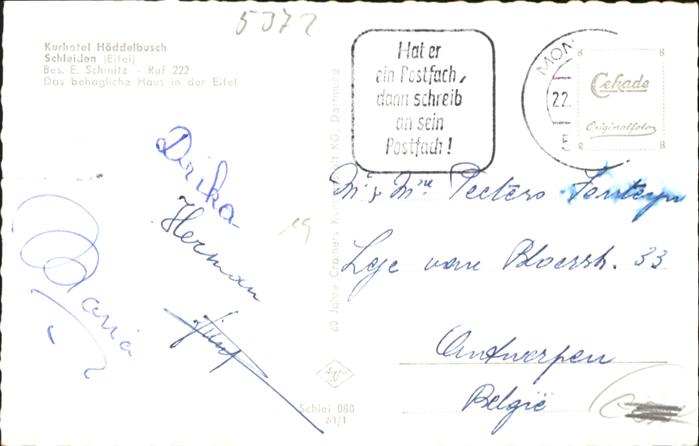 5372
Kurhotel Höddelbusch
Schleiden (Eifel)
Bes. E. Schmitz - Ruf 222
Das behagliche Haus in der Eifel
Hat er
ein Postfach,
dann schreib
an sein
Postfach!
MON
22.
Cekade
Originalfoto
Drika
Herman
Maria
60 Jahre Cramers KG, Dortmund
Mr & Mme Peeters Fonteyn
33
Antwerpen
België
Agfa
Schlei 080
61/1